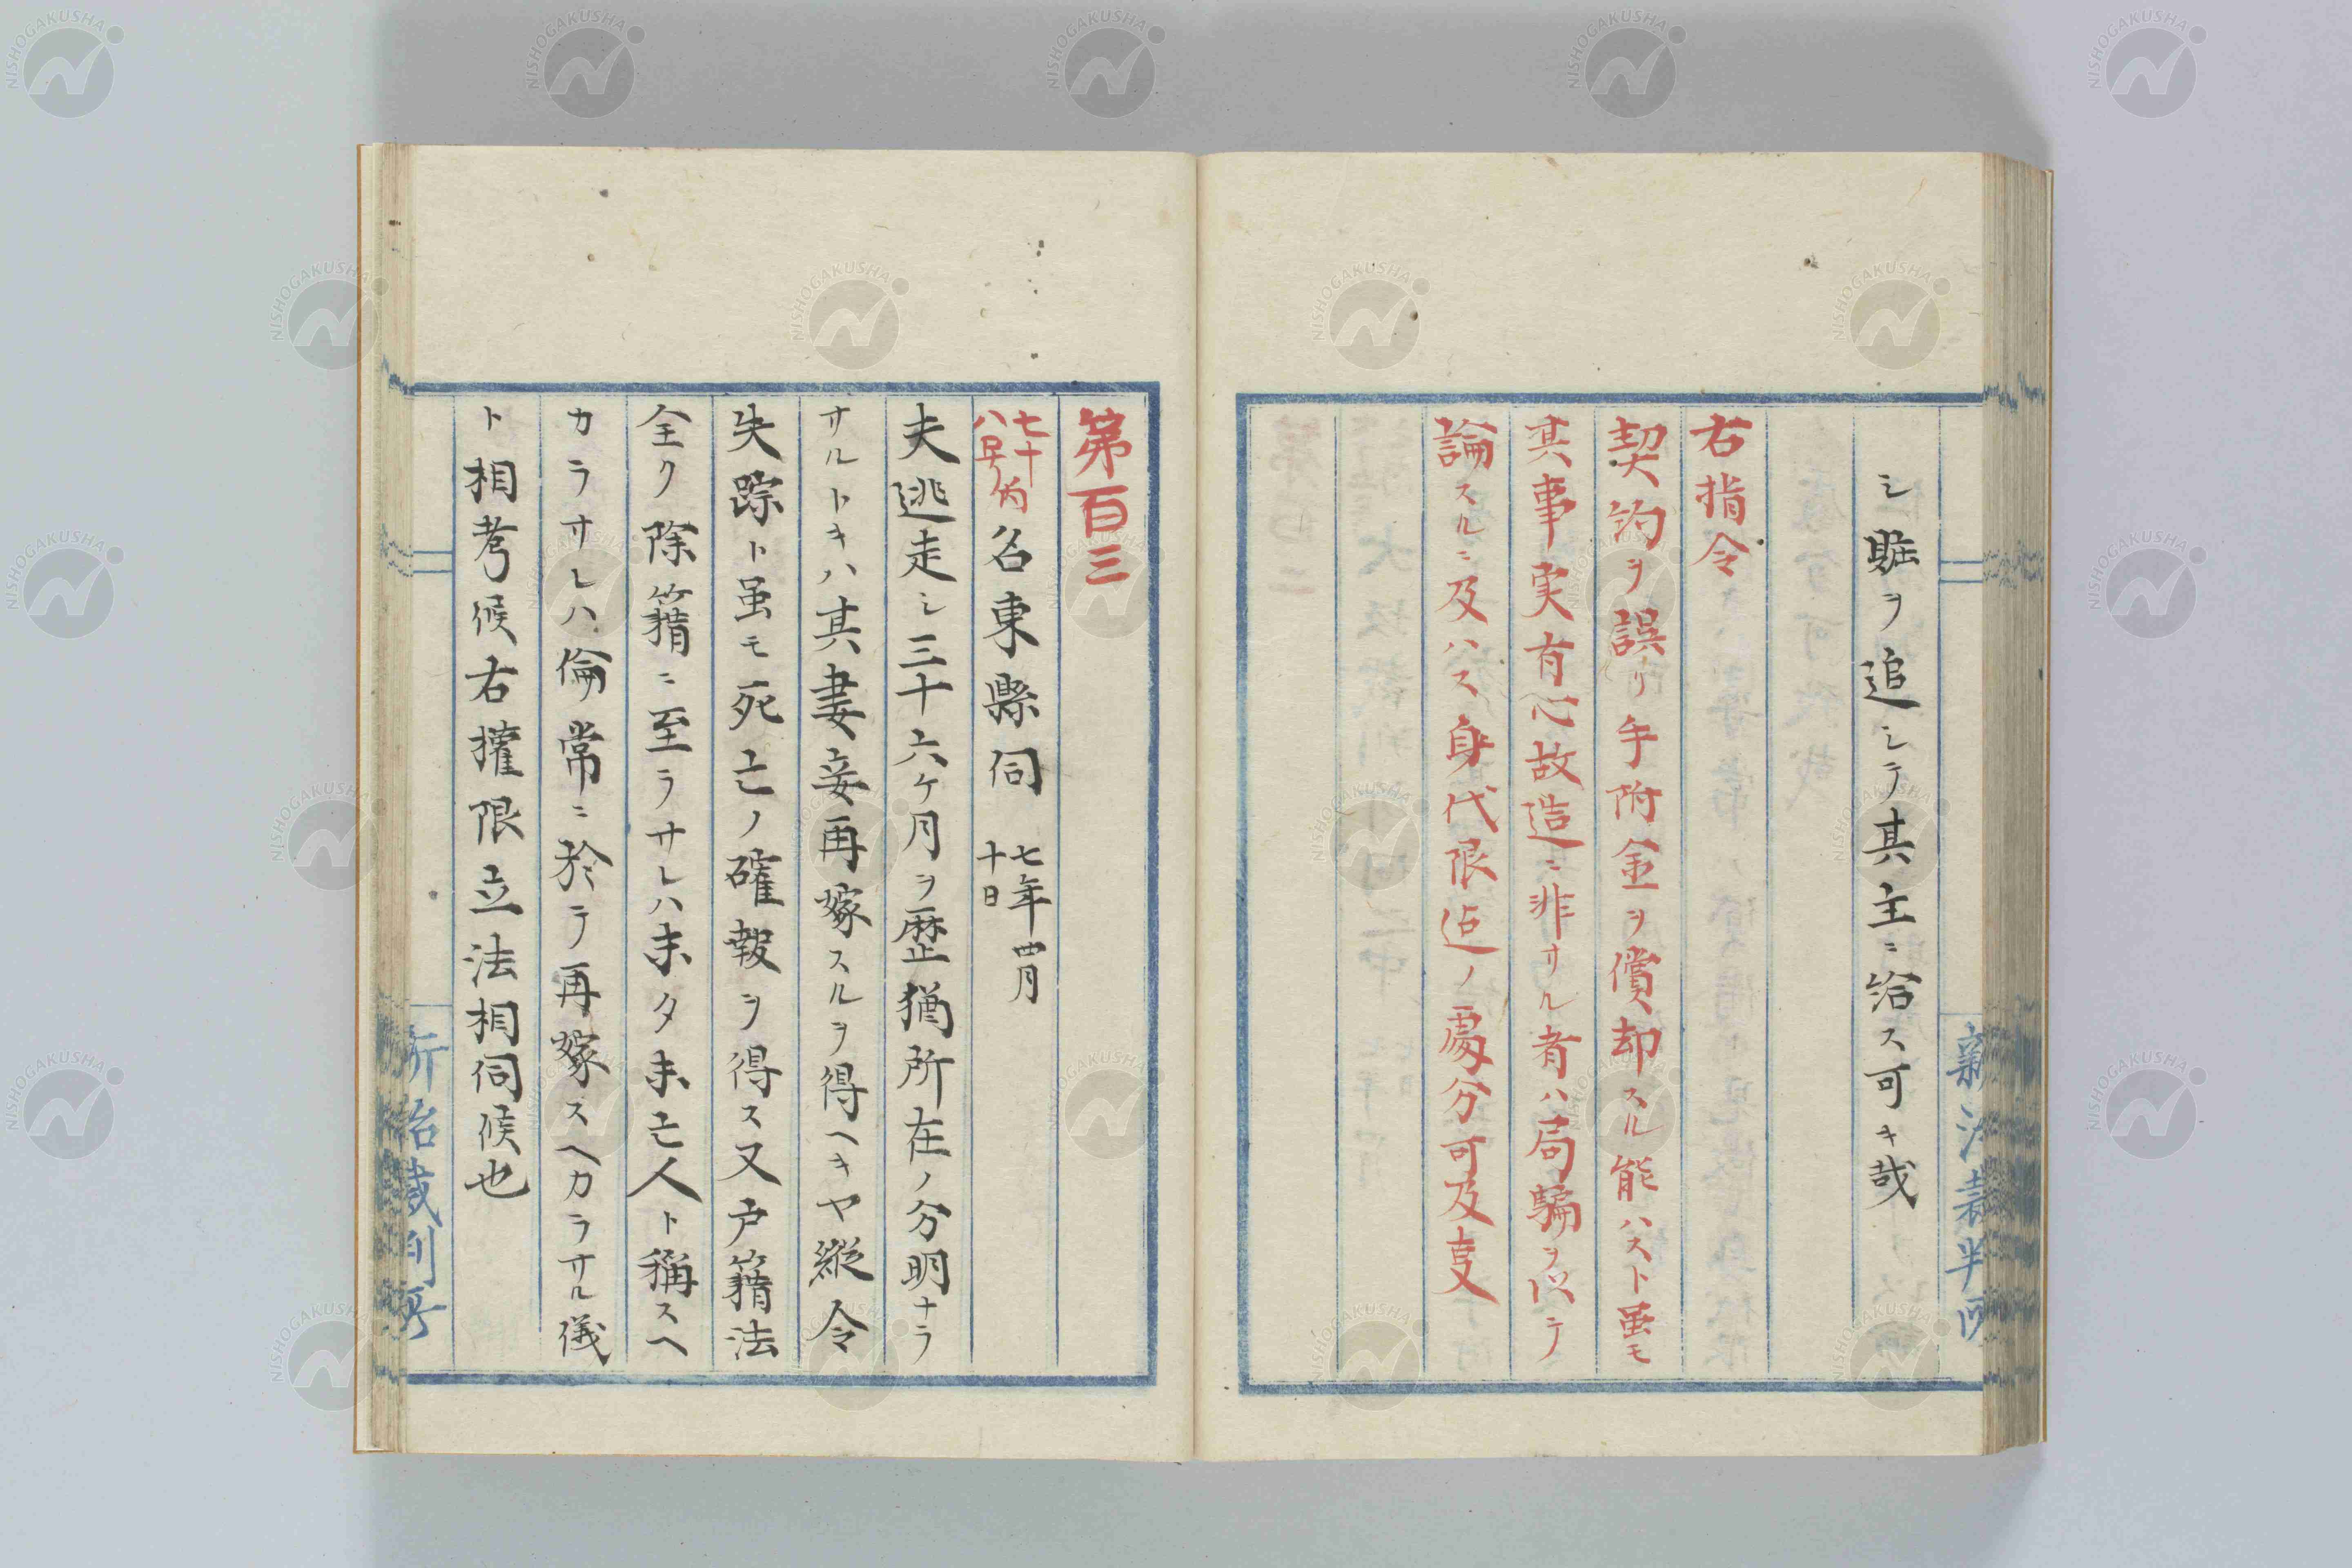 シ賍ヲ追シテ其主ニ給ス可キ哉
右指令
契約ヲ誤リ手附金ヲ償却スル能ハスト虽モ
其事実有心故造ニ非サル者ハ局騙ヲ以テ
論スルニ及ハス身代限追ノ處分可及𡖋
第百三
七十八号ノ内
名東縣伺
七年四月十日
夫逃走シ三十六ケ月ヲ歴猶所在ノ分明ナラ
サルトキハ其妻妾再嫁スルヲ得ヘキヤ縦令
失踪ト虽モ死亡ノ確報ヲ得ス又戸籍法
全ク除籍ニ至ラサレハ未タ未亡人ト稱スヘ
カラサレハ倫常ニ於テ再嫁スヘカラサル儀
ト相考候右權限立法相伺候也
NISHOGAKUSHA